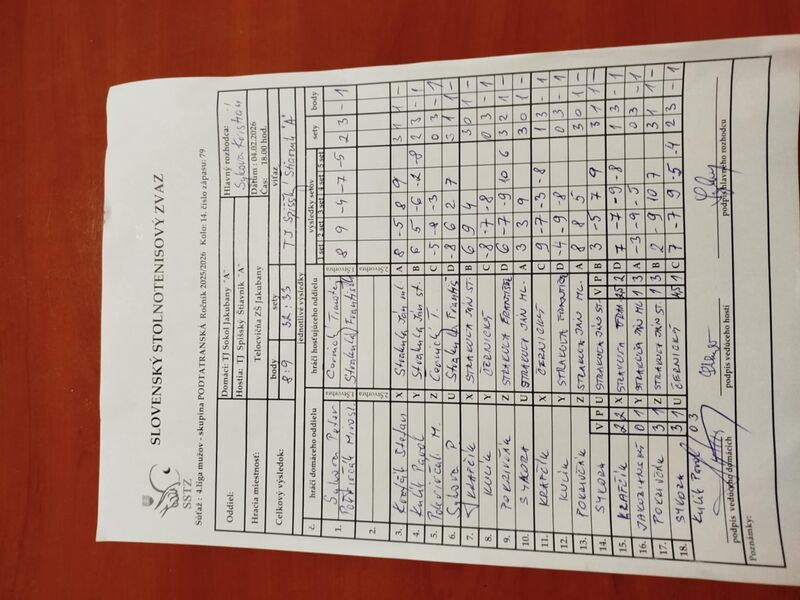 SSTZ
SLOVENSKÝ STOLNOTENISOVÝ ZVAZ
Súťaž : 4.liga mužov - skupina PODTATRANSKÁ Ročník 2025/2026 Kolo: 14. číslo zápasu: 79
Oddiel: Domáci: TJ Sokol Jakubany "A" Hlavný rozhodca:
Hostia: TJ Spišský Štiavnik "A" Sykora Kristian
Hracia miestnosť: Telocvičňa ZŠ Jakubany Dátum : 04.02.2026
Čas: 18.00 hod.
Celkový výsledok: body sety víťaz
8:9 32:33 TJ Spiš. Štiavnik "A"
jednotlivé výsledky
č. hráči domáceho oddielu hráči hosťujúceho oddielu výsledky setov sety body
1.set 2 set 3 set 4 set 5 set
1. Sykora Peter 1.štvorhra Černický Timotej 1.štvorhra 8 9 -4 -7 -5 2 3 - 1
Strakula František
2. 2.štvorhra 2.štvorhra
3. X Strakula Ján ml A 8 -5 8 9 3 1 1 -
4. Kulik Pavol Y Strakula Ján st. B 6 5 -6 -2 -8 2 3 - 1
5. Z Černický T. C -5 -8 -3 0 3 - 1
6. Sykora P U D -8 6 2 7 3 1 1 -
7. KRAFČÍK X STRAKULA JÁN ST. B 6 9 4 3 0 1 -
8. KULÍK Y ČERNICKÝ C -8 -7 -8 0 3 - 1
9. Z STRAKULA FRANTIŠEK D 6 -7 -9 10 6 3 2 1 -
10. SÝKORA U STRAKULA JÁN ML. A 3 3 9 3 0 1 -
11. KRAFČÍK X ČERNICKÝ C 9 -7 -3 -8 1 3 - 1
12. KULÍK Y STRAKULA FRANTIŠEK D -4 -9 -8 0 3 - 1
13. Z STRAKULA JÁN ML. A 8 8 5 3 0 1 -
14. SÝKORA V P U STRAKULA JÁN ST. V P B 3 -5 7 9 3 1 1 -
15. KRAFČÍK 2 2 X STRAKULA D 7 -7 -9 -8 1 3 - 1
16. 0 1 Y STRAKULA JÁN ML 1 3 A -3 -9 -5 0 3 - 1
17. 3 1 Z STRAKULA JÁN ST 1 3 B 2 -9 10 7 3 1 1 -
18. SÝKORA 3 1 U ČERNICKÝ C 7 -7 9 -5 -4 2 3 - 1
Kulik Pavol 0 3
podpis vedúceho domácich podpis vedúceho hostí podpis hlavného rozhodcu
Poznámky: